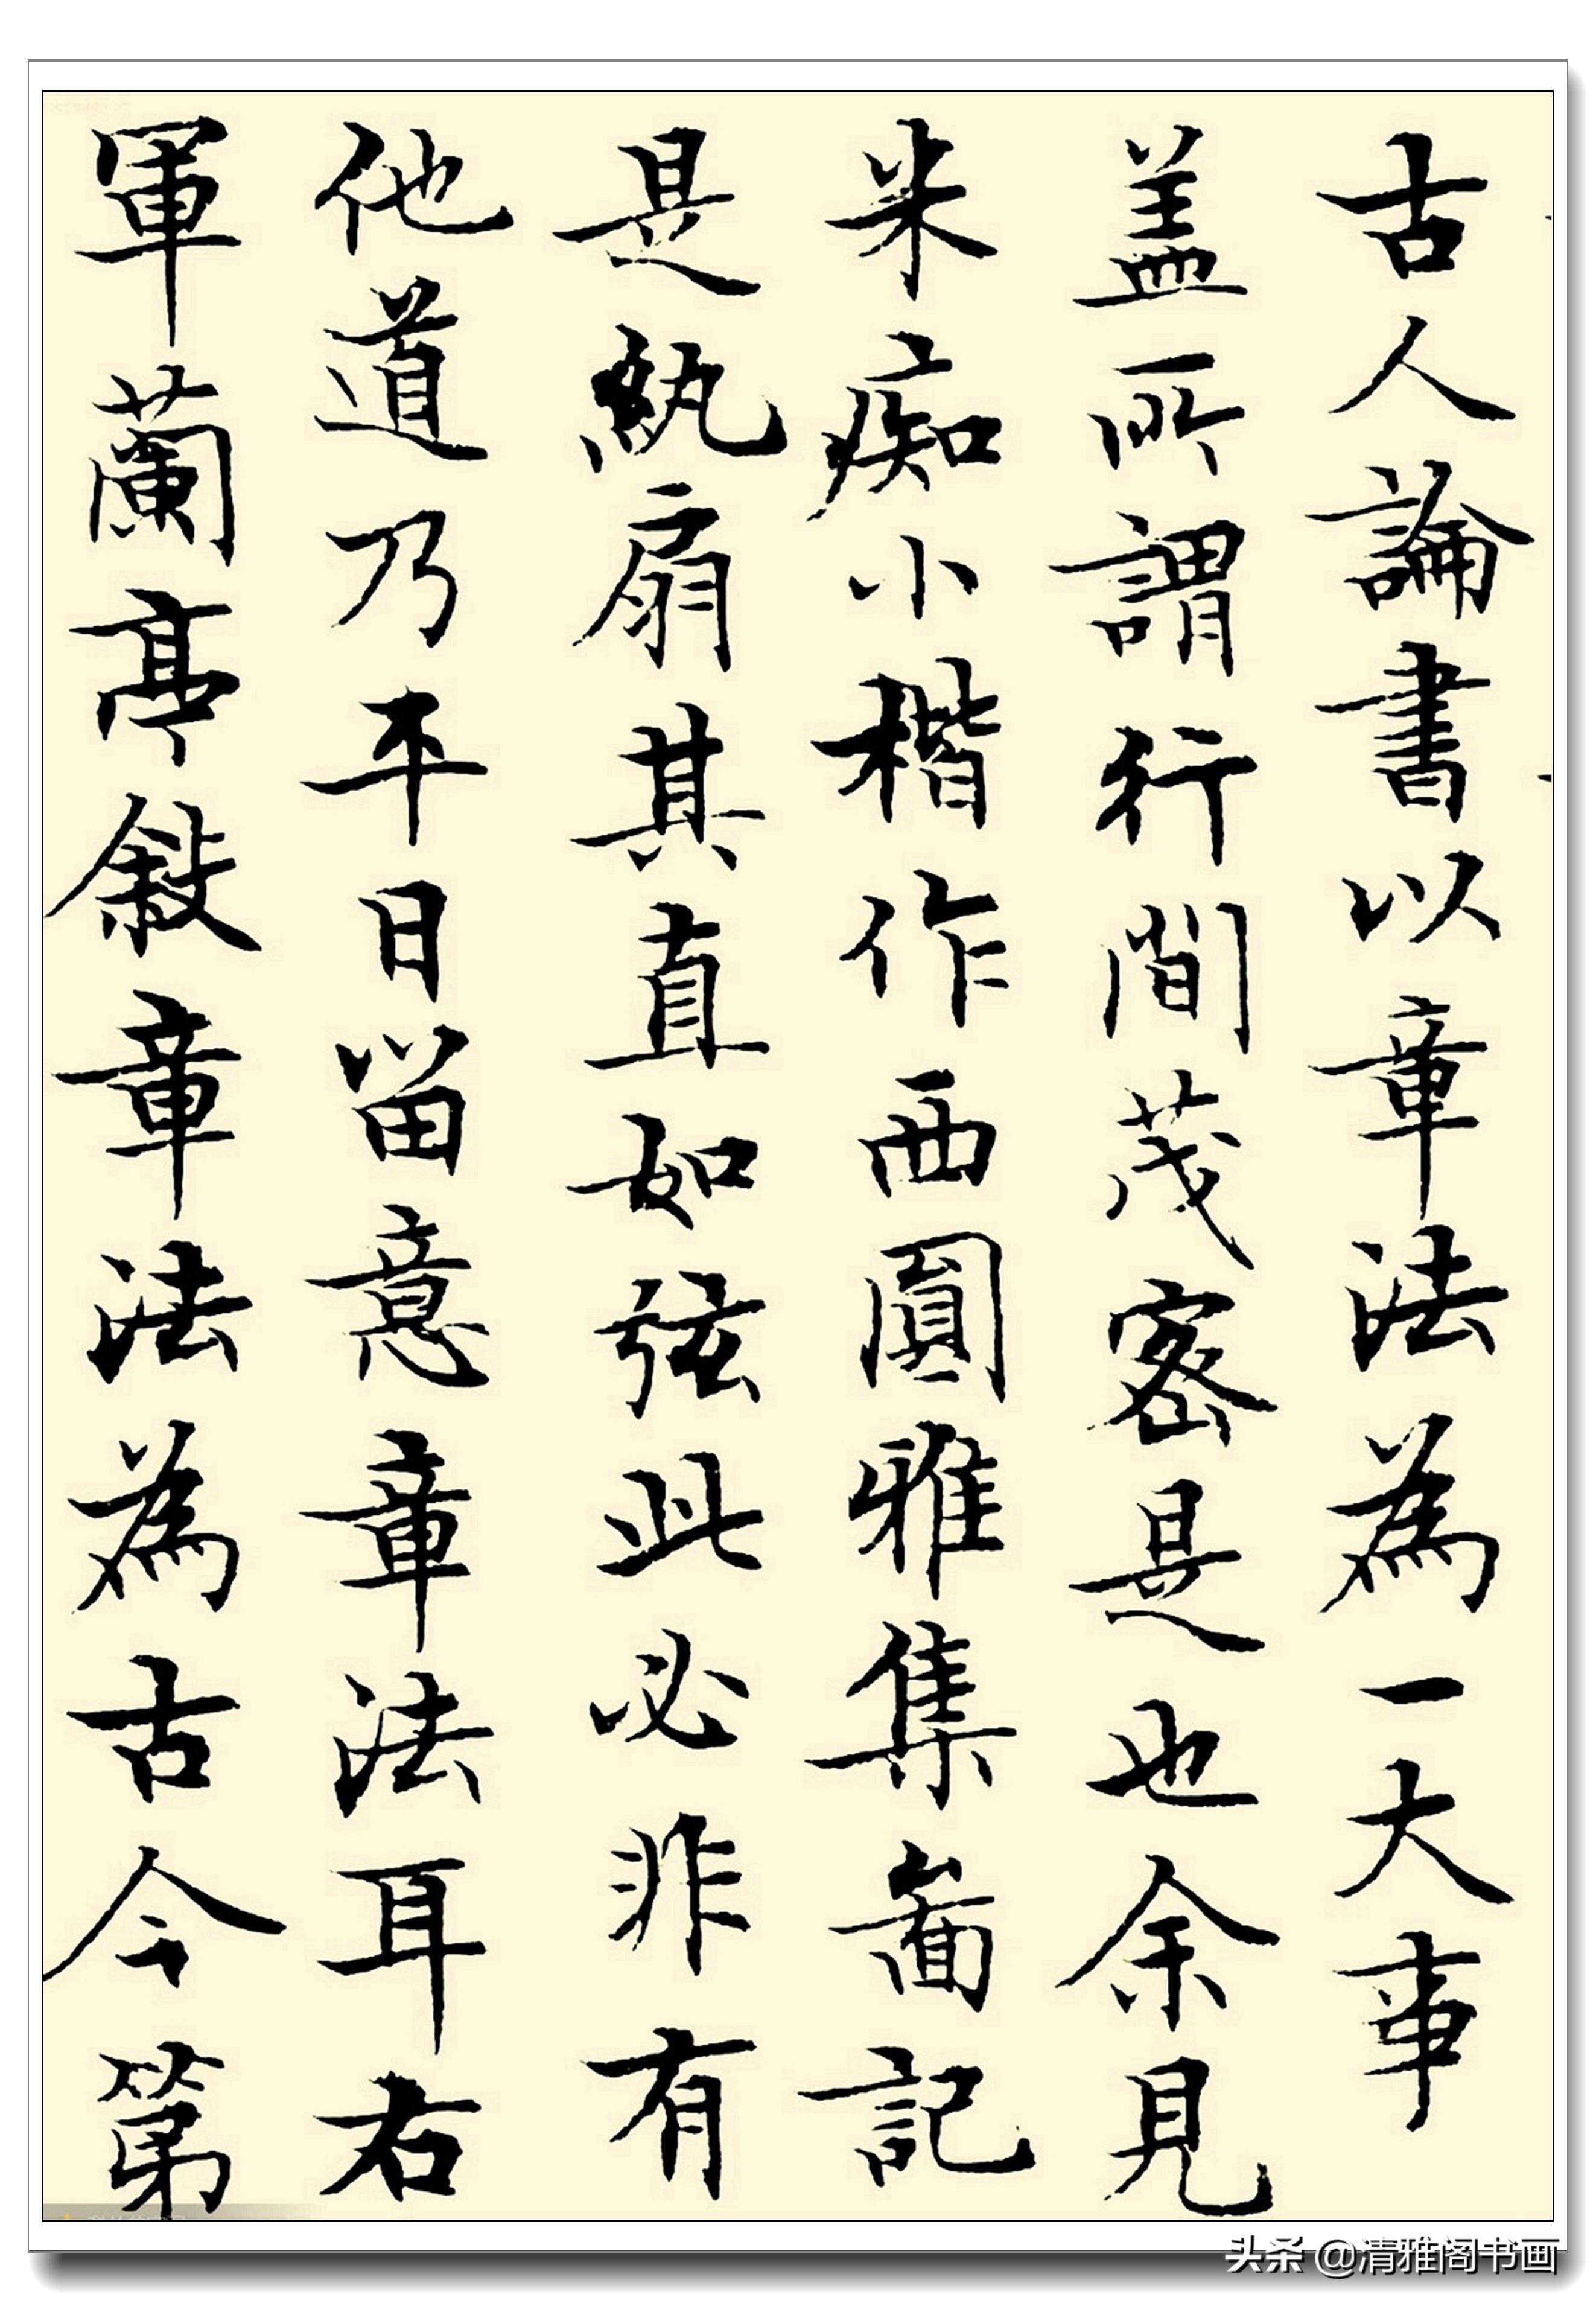 古人論書以章法為一大事
盖所謂行間茂密是也余見
米痴小楷作西園雅集啚記
是紈扇其直如弦此必非有
他道乃平日留意章法耳右
軍蘭亭敍章法為古今第
头条 @清雅阁书画